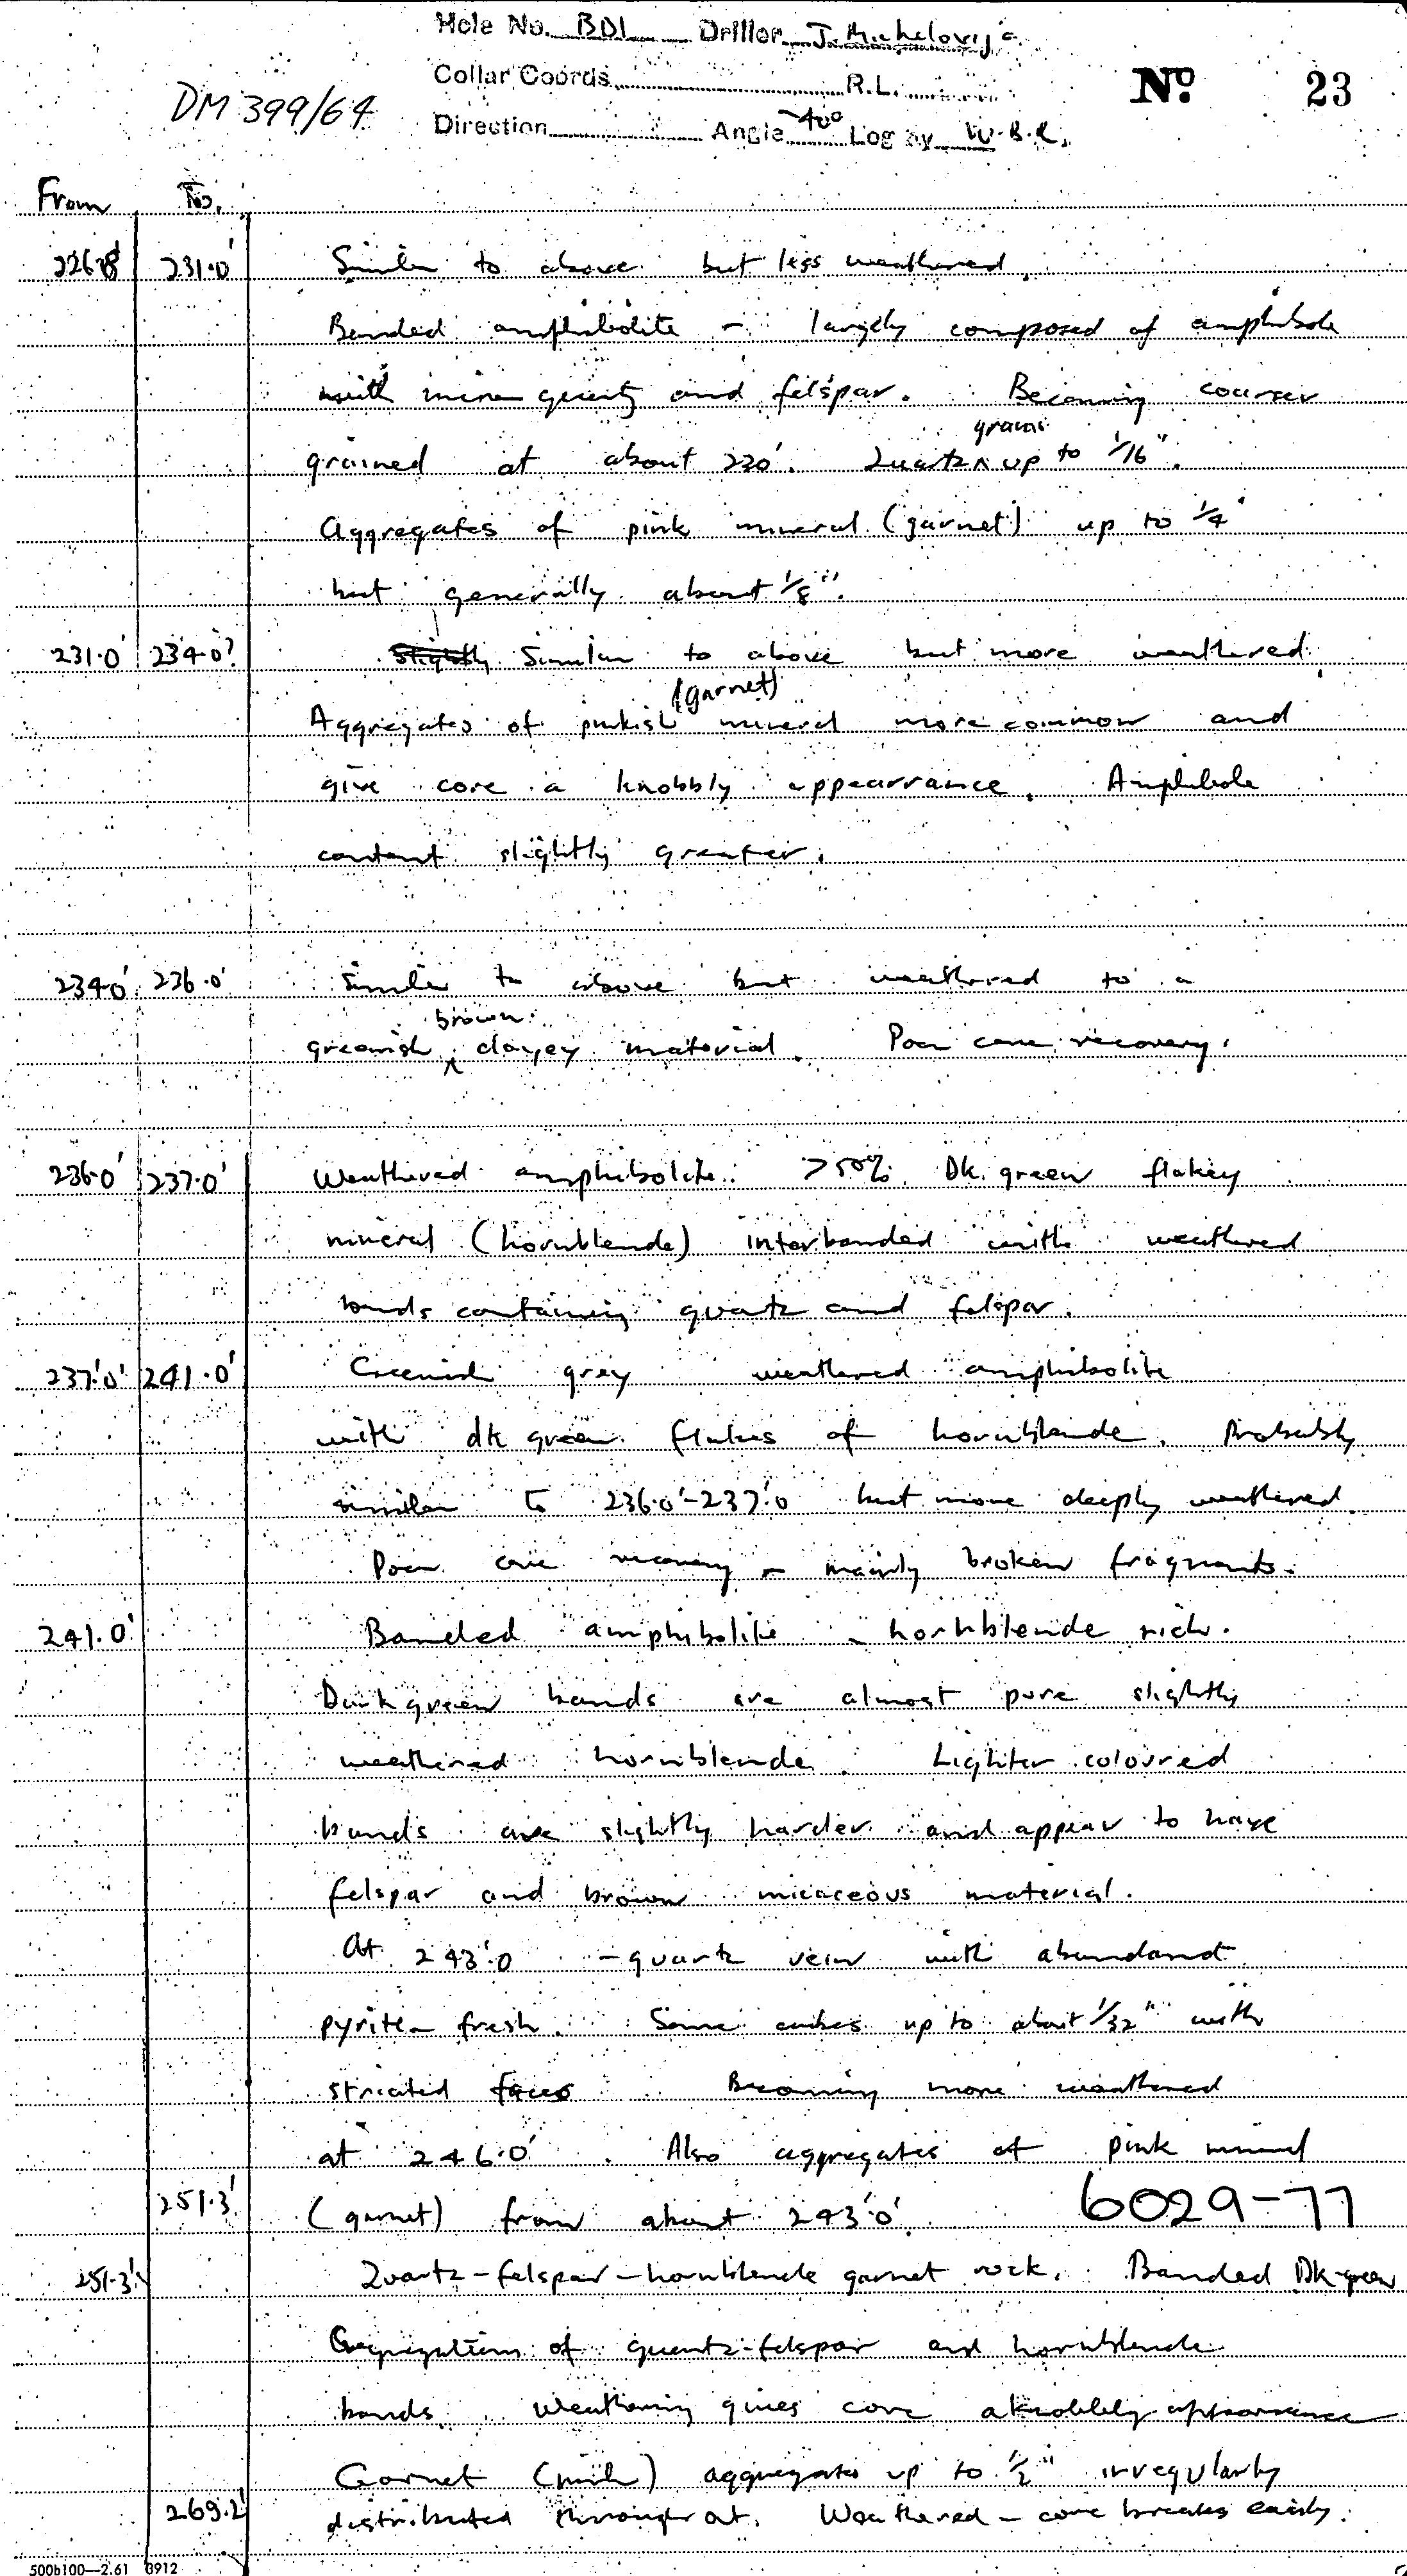 Hole No. BD1 Driller J. Michelovija
Collar Coords R.L. No. 23
DM 399/64
Direction Angle -40° Log by W.B.R.
From To.
226.8' 231.0' Similar to above but less weathered.
Banded amphibolite - largely composed of amphibole
with minor quartz and felspar. Becoming courser
grains
grained at about 230'. Quartz ^ up to 1/16".
Aggregates of pink mineral (garnet) up to 1/4"
but generally about 1/8".
231.0' 234.0' Slightly Similar to above but more weathered.
(garnet)
Aggregates of pinkish mineral more common and
give core a knobbly appearrance. Amphibole
content slightly greater.
234.0' 236.0' Similar to above but weathered to a
brown
greenish ^ clayey material. Poor core recovery.
236.0' 237.0' Weathered amphibolite. >50% Dk. green flakey
mineral (hornblende) interbanded with weathered
bands containing quartz and felspar.
237.0' 241.0' Greenish grey weathered amphibolite
with dk green flakes of hornblende. Probably
similar to 236.0'-237.0' but more deeply weathered.
Poor core recovery - mainly broken fragments.
241.0' Banded amphibolite - hornblende rich.
Dark green bands are almost pure slightly
weathered hornblende. Lighter coloured
bands are slightly harder and appear to have
felspar and brown micaceous material.
At 243'.0 - quartz vein with abundant
pyrite - fresh. Some cubes up to about 1/32" with
striated faces Becoming more weathered
at 246.0'. Also aggregates of pink mineral
251.3' (garnet) from about 243'.0'.
6029-77
251.3' Quartz-felspar-hornblende garnet rock. Banded Dk-green
Segregations of quartz-felspar and hornblende
bands. Weathering gives core a knobbly appearance
Garnet (pink) aggregates up to 1/2" irregularly
269.2' distributed throughout. Weathered - core breaks easily.
500b100—2.61 8912